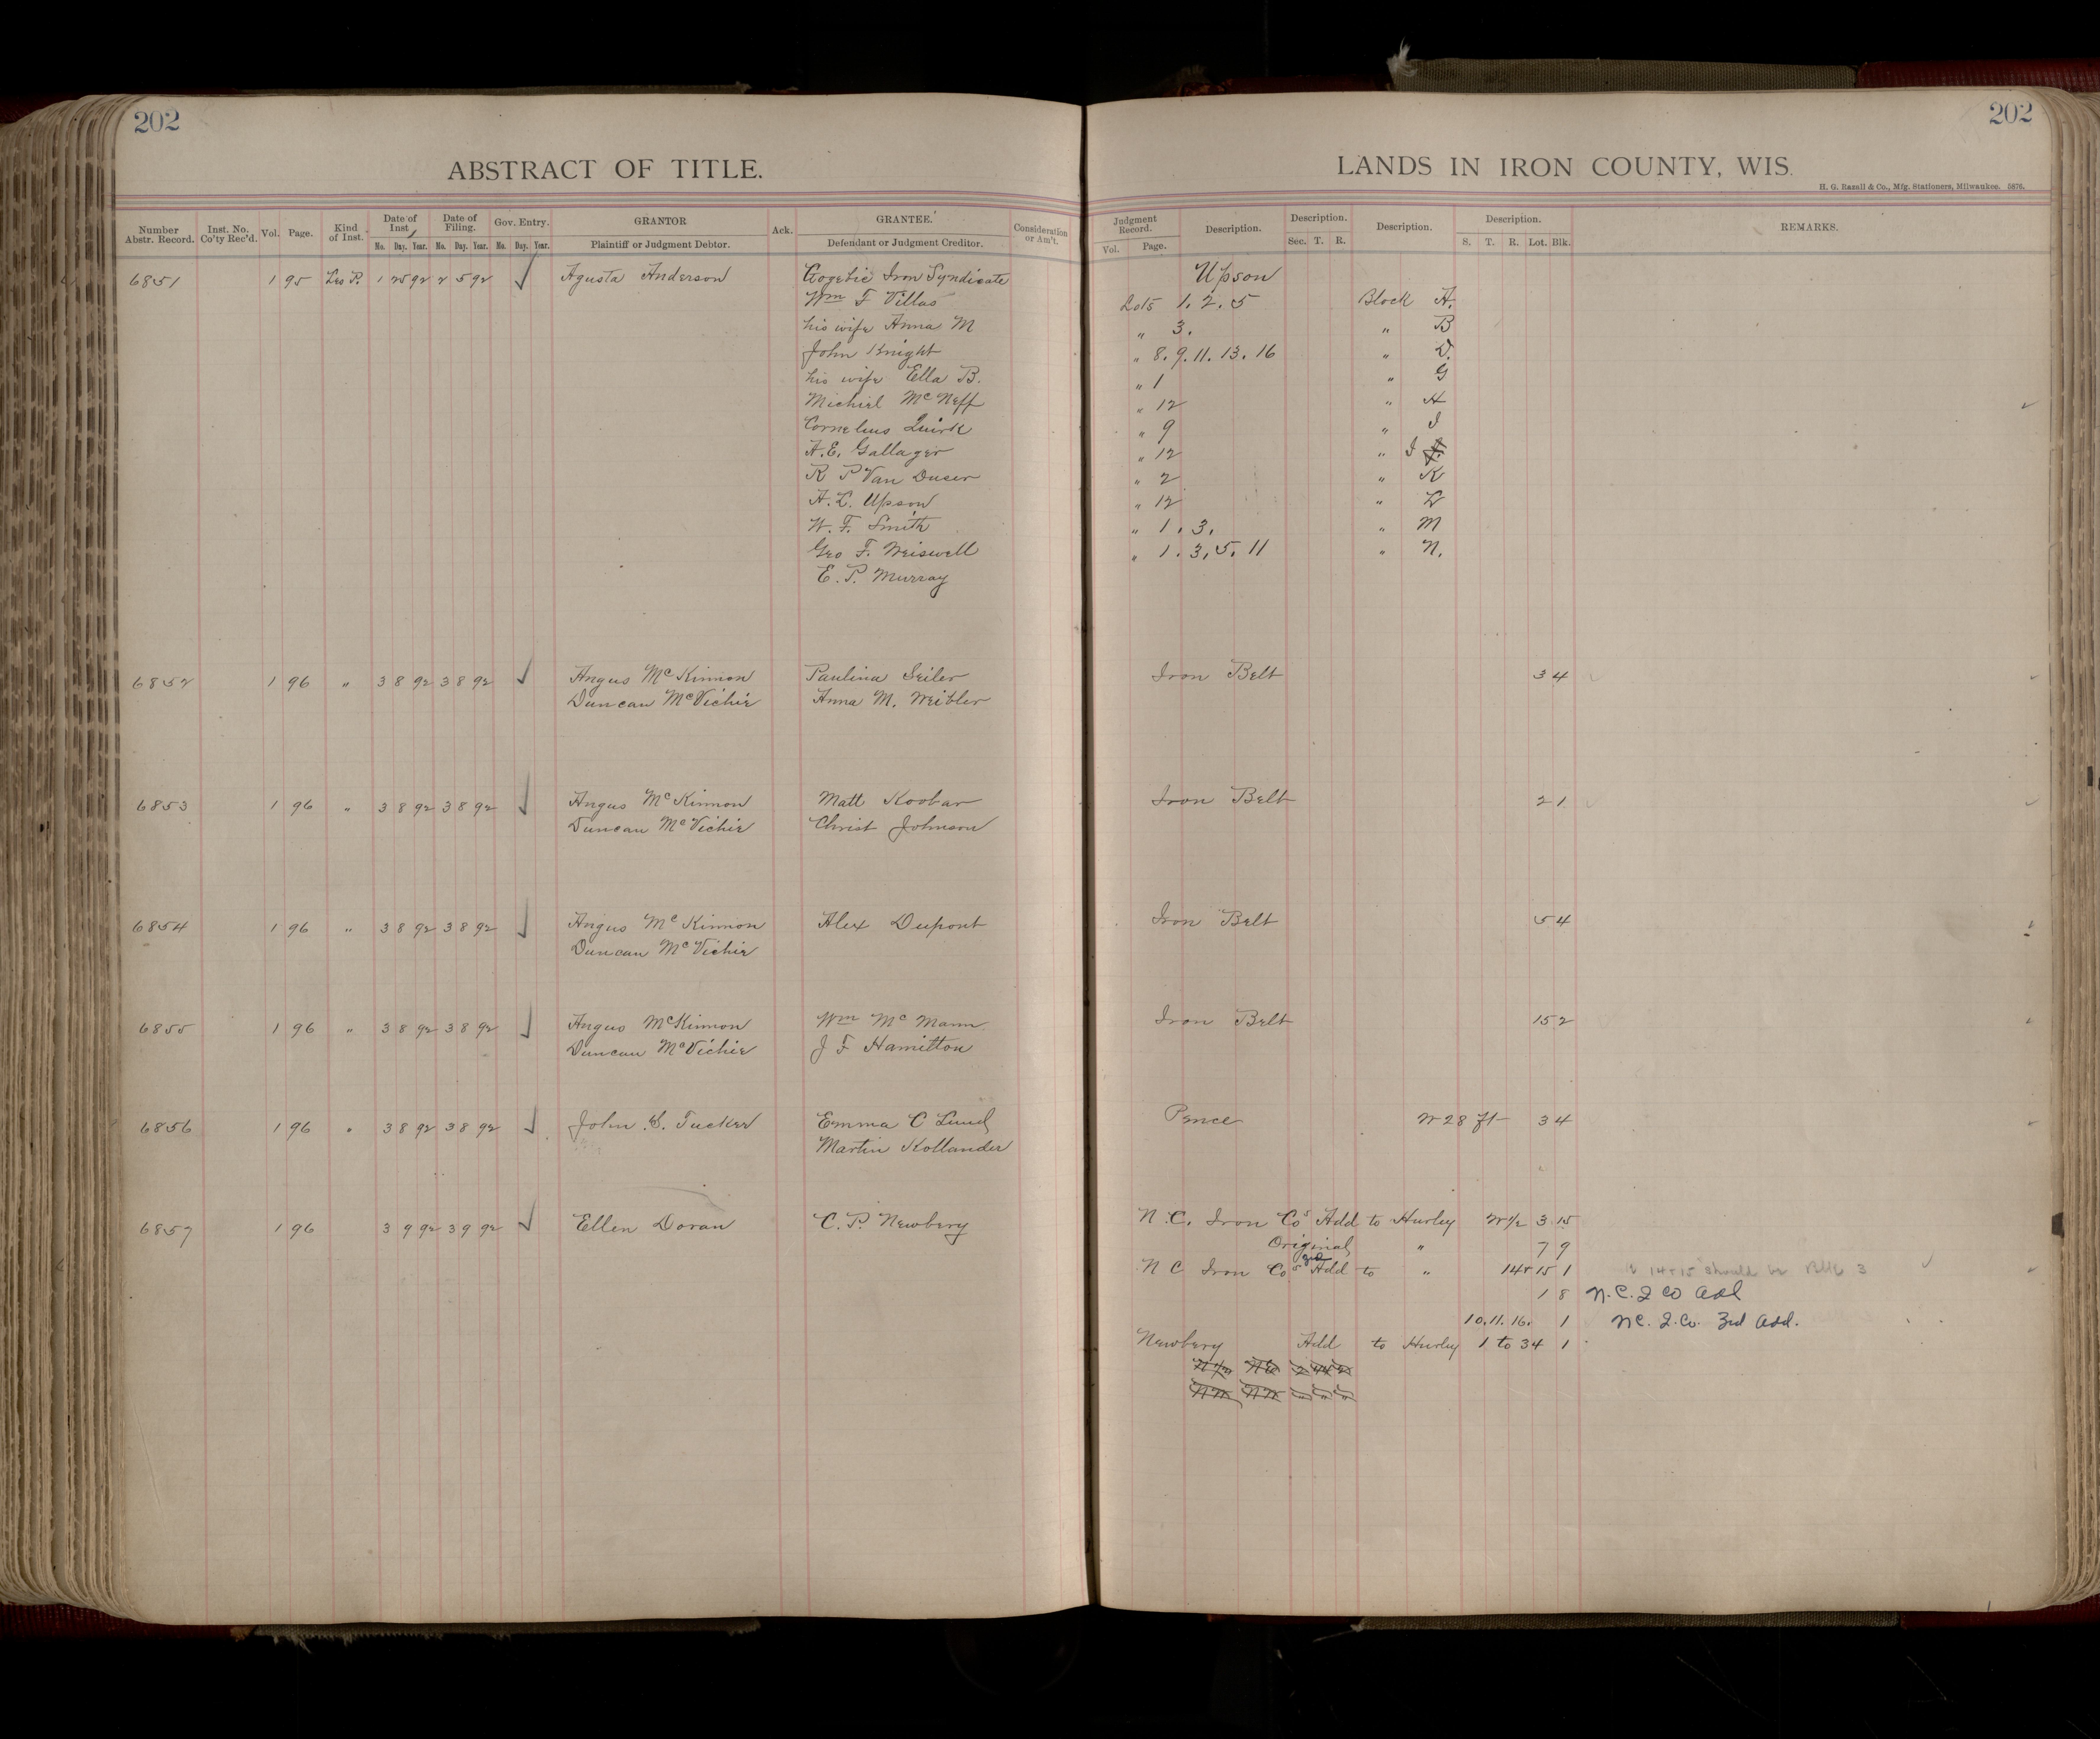 202
202
ABSTRACT OF TITLE.
LANDS IN IRON COUNTY, WIS.
H. G. Razall & Co., Mfg. Stationers, Milwaukee. 5876.
Number Abstr. Record. Inst. No. Co'ty Rec'd. Vol. Page. Kind of Inst. Date of Inst. Date of Filing. Gov. Entry. GRANTOR Ack. GRANTEE. Consideration or Am't. Judgment Record. Description. Description. Description. Description. REMARKS.
No. Day. Year. No. Day. Year. No. Day. Year. Plaintiff or Judgment Debtor. Defendant or Judgment Creditor. Vol. Page. Sec. T. R. S. T. R. Lot. Blk.
6851 1 95 Les P. 1 25 92 2 5 92 ✓ Agusta Anderson Gogebic Iron Syndicate Upson
Wm F Villas Lots 1. 2. 5 Block A.
his wife Anna M " 3. " B
John Knight " 8. 9. 11. 13. 16 " D.
his wife Ella B. " 1 " G
Michiel McNeff " 12 " H
Cornelius Quirk " 9 " I
A. E. Gallager " 12 " J
R P Van Duser " 2 " K
A. L. Upson " 12 " L
W. F. Smith " 1. 3. " M
Geo F. Weiswell " 1. 3, 5. 11 " N.
E. P. Murray
6852 1 96 " 3 8 92 3 8 92 ✓ Angus McKinnon Paulina Seiler Iron Belt 3 4
Duncan McVichie Anna M. Weibler
6853 1 96 " 3 8 92 3 8 92 ✓ Angus McKinnon Matt Koobar Iron Belt 2 1
Duncan McVichie Christ Johnson
6854 1 96 " 3 8 92 3 8 92 ✓ Angus McKinnon Alex Dupont Iron Belt 5 4
Duncan McVichie
6855 1 96 " 3 8 92 3 8 92 ✓ Angus McKinnon Wm McMann Iron Belt 15 2
Duncan McVichie J F Hamilton
6856 1 96 " 3 8 92 3 8 92 ✓ John S. Tucker Emma C Lund Pence W 28 ft 3 4
Martin Kollander
6857 1 96 3 9 92 3 9 92 ✓ Ellen Doran C. P. Newbery N. C. Iron Cos Add to Hurley W1/2 3 15
Original " 7 9
N C Iron Cos 3rd Add to " 14 & 15 1 14 & 15 should be Blk 3
1 8 N. C. I Co Add
10. 11. 16. 1 N C. I. Co. 3rd Add.
Newbery Add to Hurley 1 to 34 1